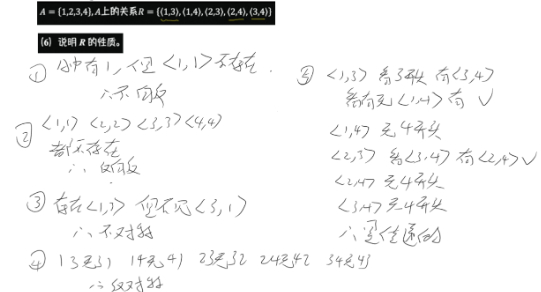 A = {1,2,3,4}, A上的关系R = {⟨1,3⟩,⟨1,4⟩,⟨2,3⟩,⟨2,4⟩,⟨3,4⟩}
(6) 说明 R 的性质。
① A中有1, 但 <1,1> 不存在.
∴不自反
② <1,1> <2,2> <3,3> <4,4>
都不存在
∴ 反自反
③ 存在<1,3> 但不见<3,1>
∴不对称
④ 13无31 14无41 23无32 24无42 34无43
∴反对称
⑤ <1,3> 看3开头 有<3,4>
看有无<1,4> 有 √
<1,4> 无4开头
<2,3> 看<3,4> 有<2,4>√
<2,4> 无4开头
<3,4> 无4开头
∴是传递的